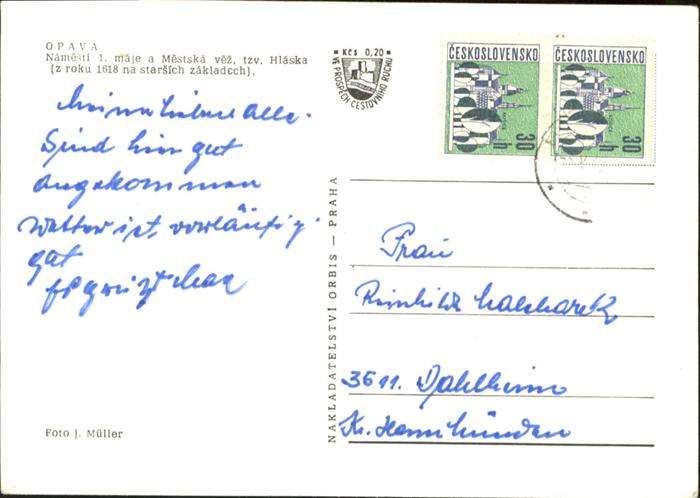 OPAVA
Náměstí 1. máje a Městská věž, tzv. Hláska
(z roku 1618 na starších základech).
Kčs 0,20
VE PROSPĚCH CESTOVNÍHO RUCHU
ČESKOSLOVENSKO
30 h
ČESKOSLOVENSKO
30 h
Meine lieben alle.
Sind hier gut
angekommen
Wetter ist vorläufig
gut
Es grüßt
NAKLADATELSTVÍ ORBIS — PRAHA
Frau
3511. Dahlheim
Kr. Hann Münden
Foto J. Müller